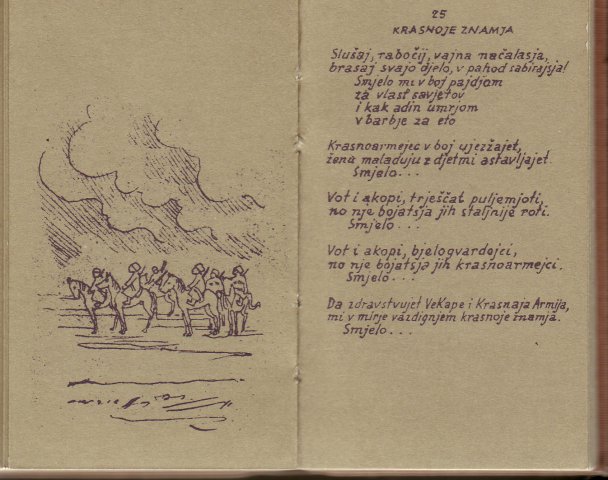 25
KRASNOJE ZNAMJA
Slušaj, rabočij, vajna načalasja,
brasaj svajo djelo, v pahod sabirajsja!
Smjelo mi v boj pajdjom
za vlast savjetov
i kak adin umrjom
v barbje za eto
Krasnoarmejec v boj ujezžajet,
žena maladuju z djetmi astavljajet.
Smjelo...
Vot i akopi, trješčat puljemjoti,
no nje bojatsja jih staljnije roti.
Smjelo...
Vot i akopi, bjelogvardejci,
no nje bojatsja jih krasnoarmejci.
Smjelo...
Da zdravstvujet VeKape i Krasnaja Armija,
mi v mirje vazdignjem krasnoje znamja.
Smjelo...